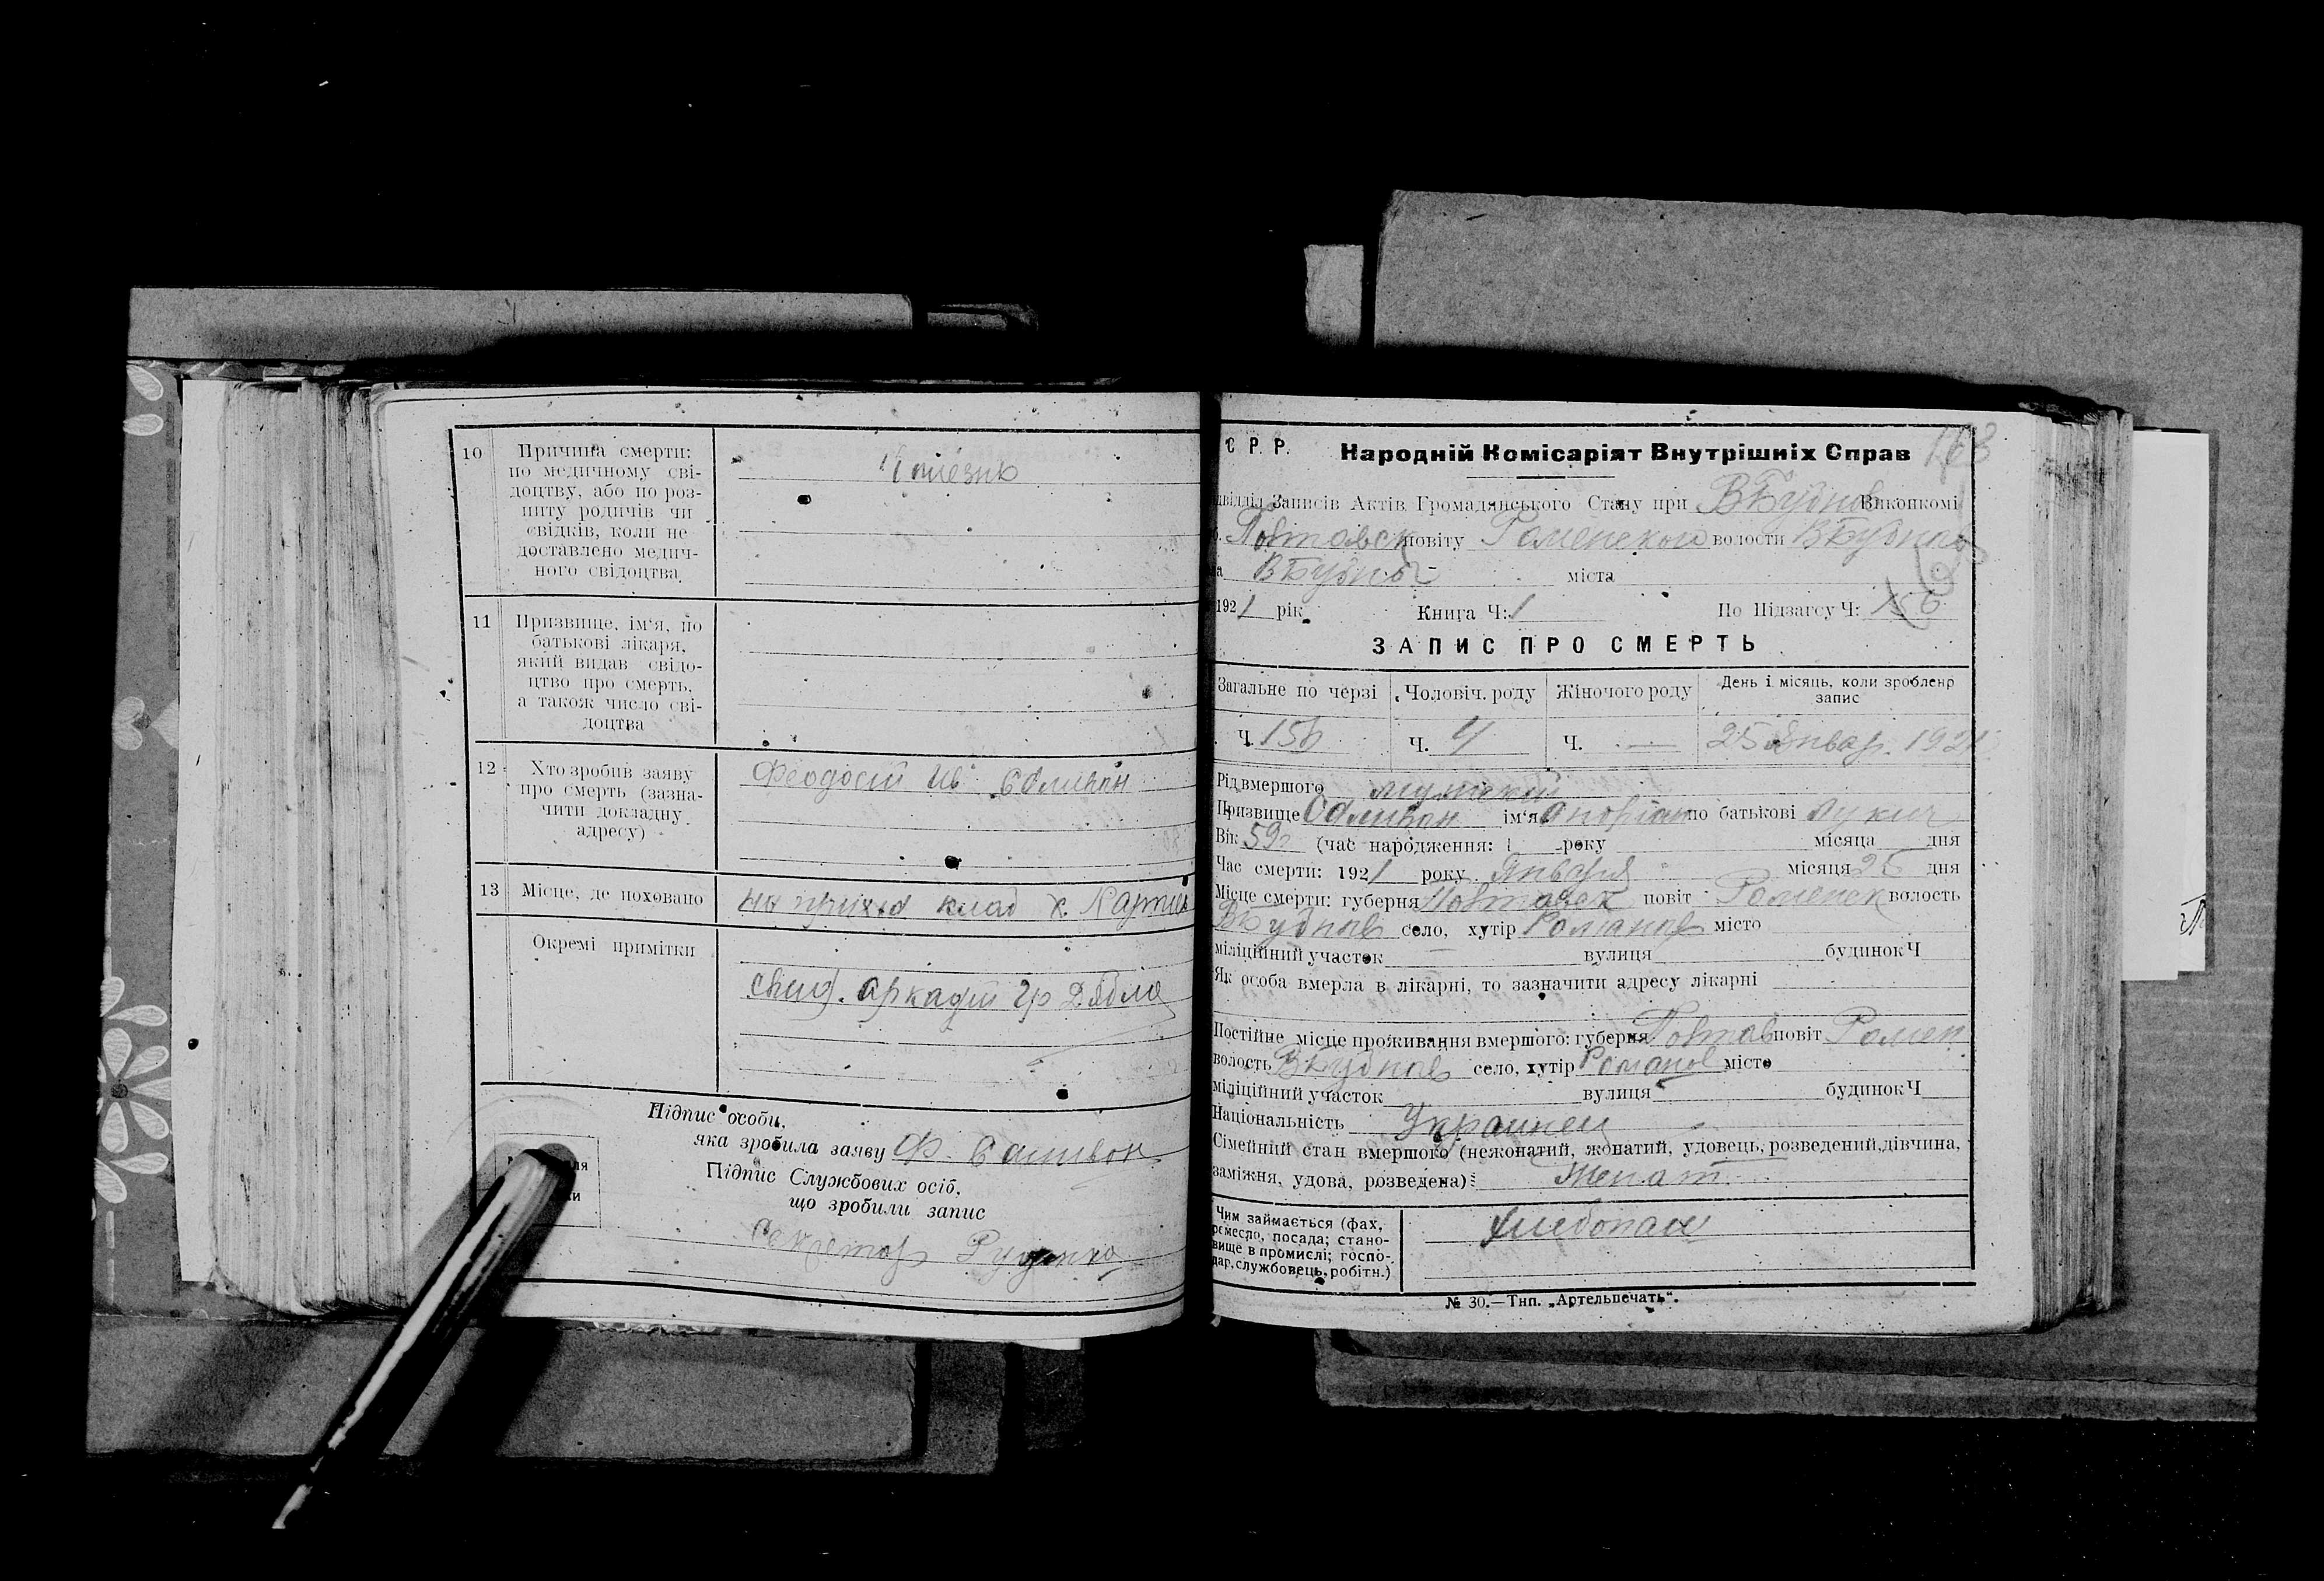 10 Причина смерти:
по медичному сві-
доцтву, або по роз-
питу родичів чи
свідків, коли не
доставлено медич-
ного свідоцтва
11 Призвище, ім'я, по
батькові лікаря,
який видав свідо-
цтво про смерть,
а також число сві-
доцтва
12 Хто зробив заяву
про смерть (зазна-
чити докладну
адресу)
Феодосій Ив
13 Місце, де поховано
на приход клад х.
Окремі примітки
Свид. Аркадій Гр
Підпис особи,
яка зробила заяву Ф.
Підпис Службових осіб,
що зробили запис
Секретар Руденко
С. Р. Р. Народній Комісаріят Внутрішніх Справ
163
Записів Актів Громадянського Стану при ВБубнов Виконкомі
Полтавск повіту Роменскои волости ВБубнов
ВБубны міста
1921 рік Книга Ч: 1 По Підзагсу Ч: 156
ЗАПИС ПРО СМЕРТЬ
Загальне по черзі Чоловіч. роду Жіночого роду День і місяць, коли зроблено
запис
Ч. 156 Ч. Ч. — 25 Январ. 1921
Рід вмершого мужский
Призвище ім'я по батькові Лукич
Вік 59 (час народження: 1 року місяца дня
Час смерти: 1921 року Января місяця 25 дня
Місце смерти: губерня Полтавск повіт Роменск волость
ВБубнов село, хутір Романов місто
міліційний участок вулиця будинок Ч
Як особа вмерла в лікарні, то зазначити адресу лікарні
Постійне місце проживання вмершого: губерня Полтав повіт Ромен
волость ВБубнов село, хутір Романов місто
міліційний участок вулиця будинок Ч
Національність Украинец
Сімейний стан вмершого (нежонатий, жонатий, удовець, розведений, дівчина,
заміжня, удова, розведена): Женат
Чим займається (фах,
ремесло, посада; стано-
вище в промислі; госпо-
дар, службовець, робітн.)
Хлебопаш
№ 30.—Тип. „Артельпечать“.